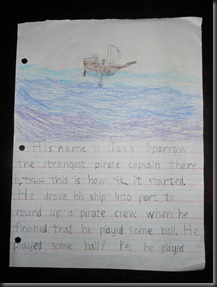 His name is Jack Sparrow
the strangest pirate captain there
is, this is how it started.
He drove his ship into port to
round up a pirate crew when he
finished that he played some ball. He
played some ball? Yes he played